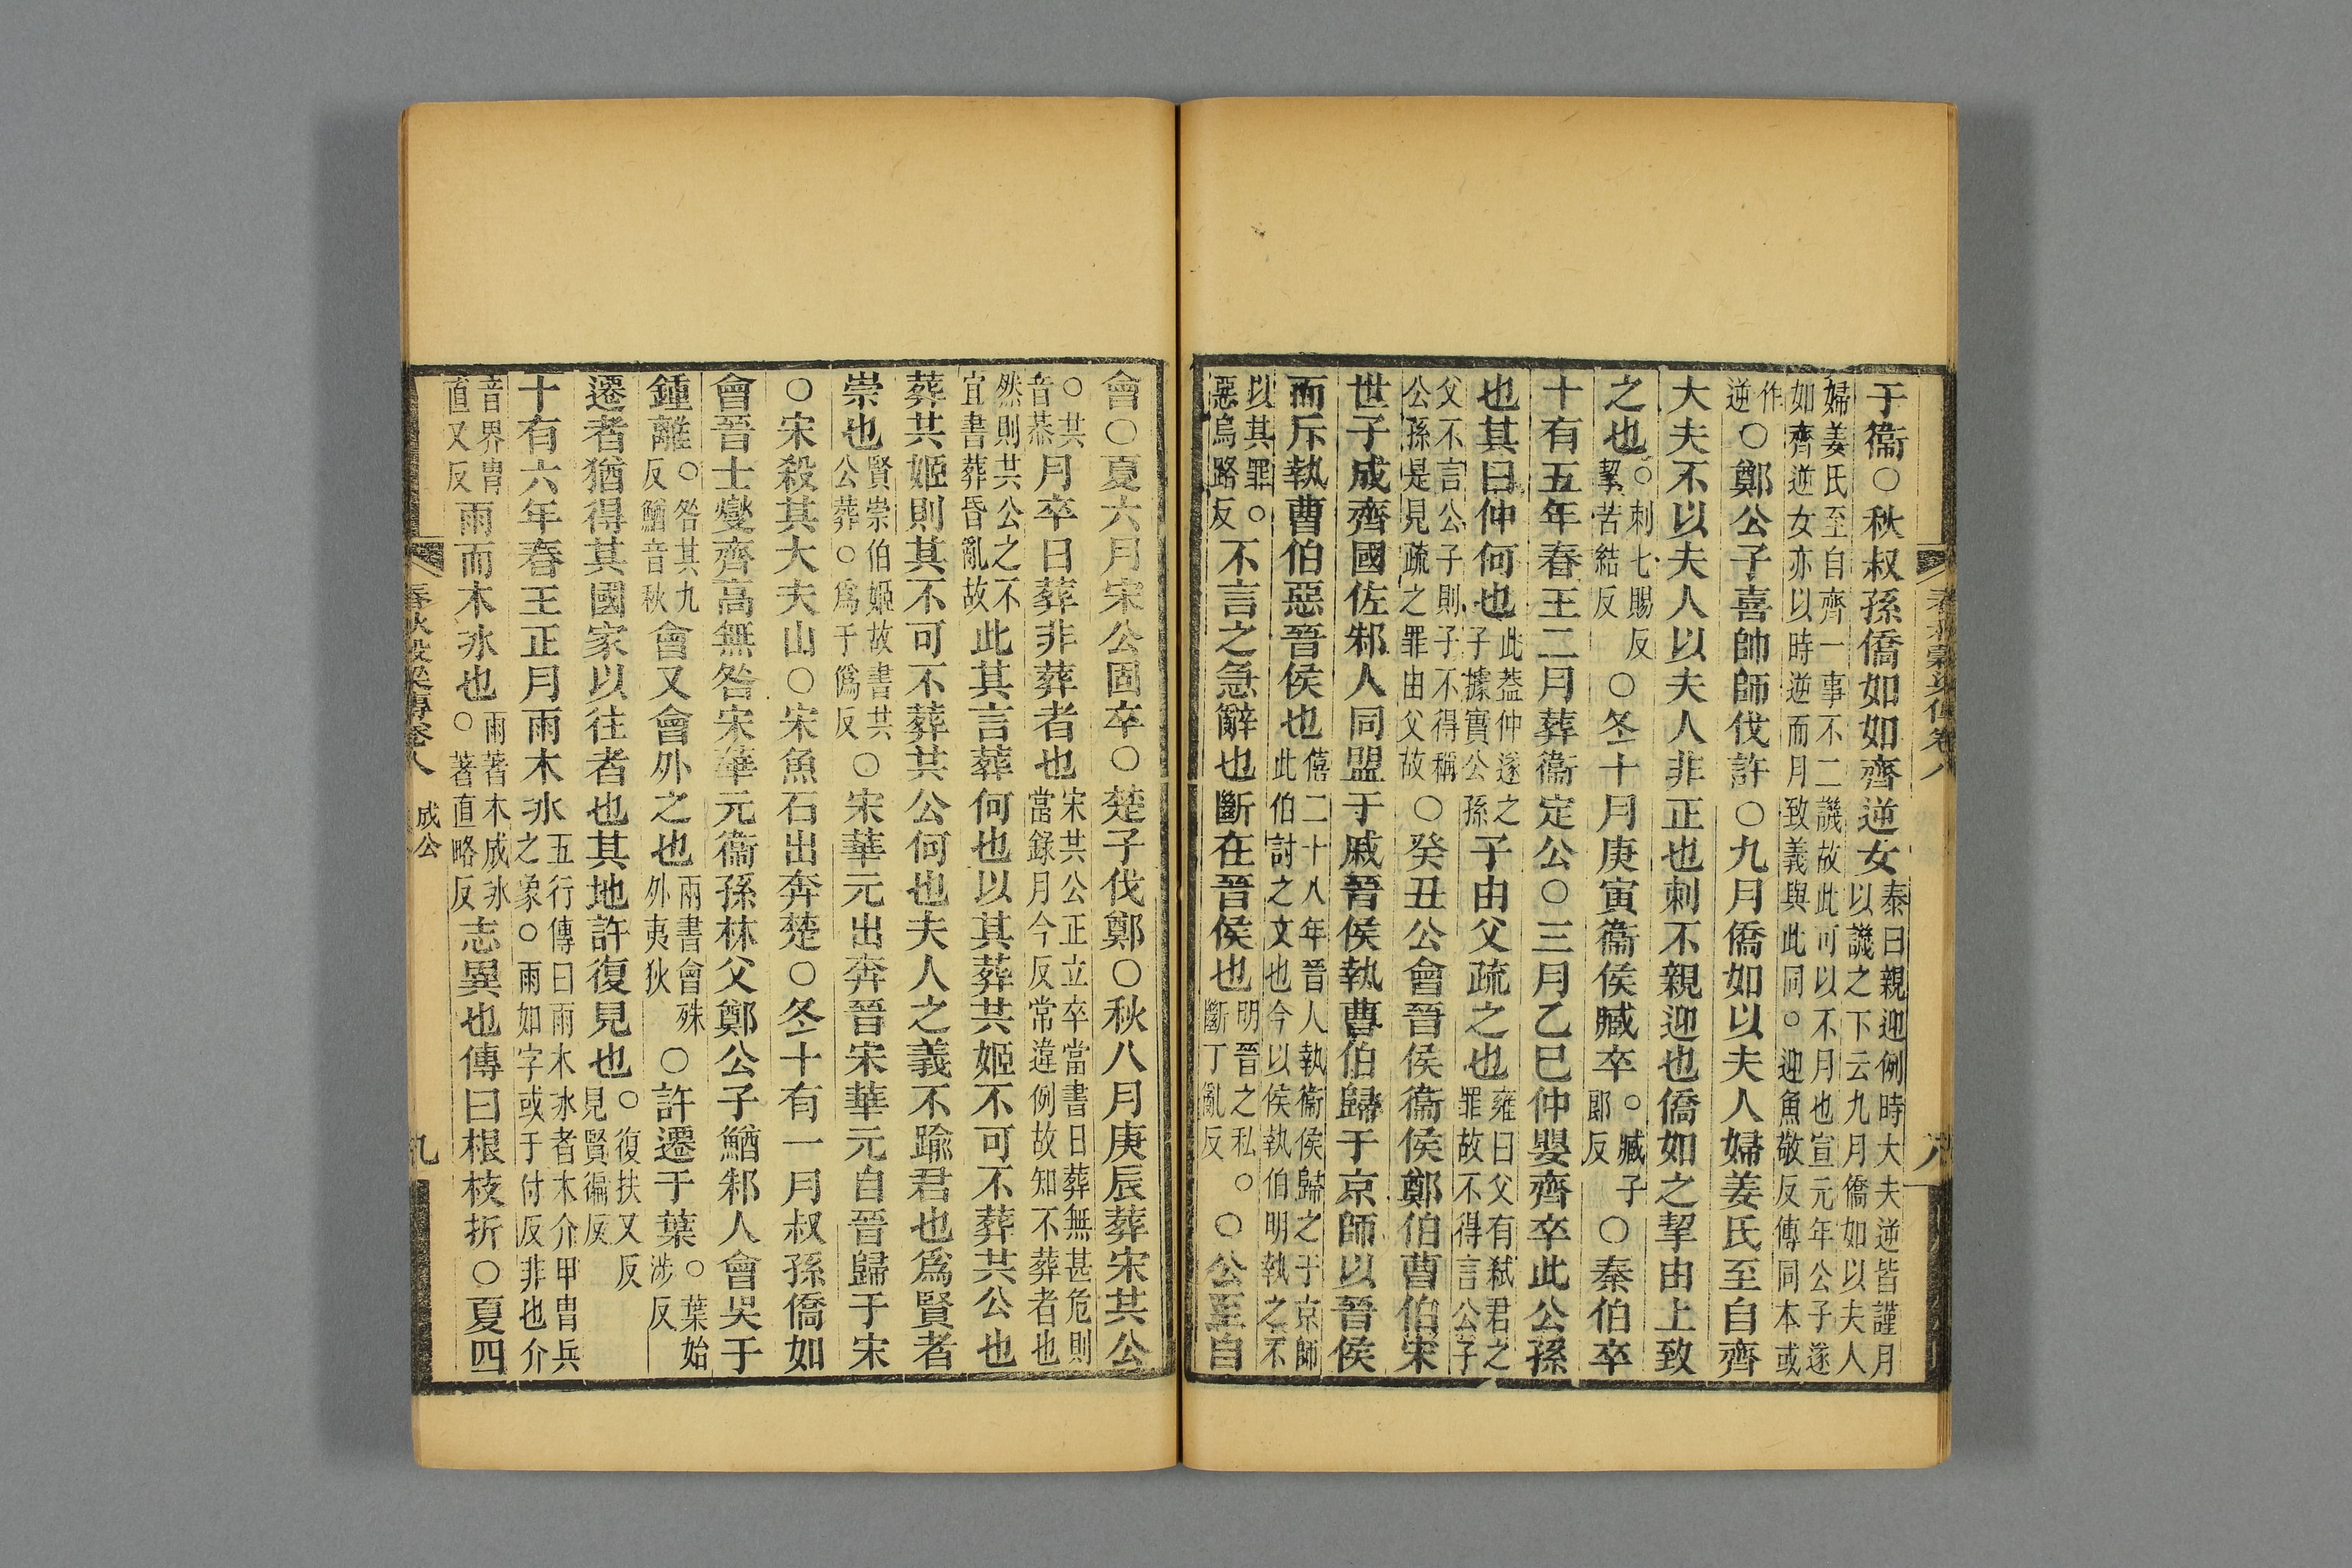 于衞○秋叔孫僑如如齊逆女秦曰親迎例時大夫逆皆謹月以譏之下云九月僑如以夫人
婦姜氏至自齊一事不二譏故此可以不月也宣元年公子遂如齊逆女亦以時逆而月致義與此同○迎魚敬反傳同本或
作逆○鄭公子喜帥師伐許○九月僑如以夫人婦姜氏至自齊
大夫不以夫人以夫人非正也刺不親迎也僑如之挈由上致
之也○刺七賜反挈苦結反○冬十月庚寅衞侯臧卒○臧子郎反○秦伯卒
十有五年春王二月葬衞定公○三月乙巳仲嬰齊卒此公孫
也其曰仲何也此葢仲遂之子據實公孫子由父疏之也雍曰父有弑君之罪故不得言公子
父不言公子則子不得稱公孫是見疏之罪由父故○癸丑公會晉侯衞侯鄭伯曹伯宋
世子成齊國佐邾人同盟于戚晉侯執曹伯歸于京師以晉侯
而斥執曹伯惡晉侯也僖二十八年晉人執衞侯歸之于京師此伯討之文也今以侯執伯明執之不
以其罪○惡烏路反不言之急辭也斷在晉侯也明晉之私○斷丁亂反○公至自
會○夏六月宋公固卒○楚子伐鄭○秋八月庚辰葬宋共公
○共音恭月卒日葬非葬者也宋共公正立卒當書日葬無甚危則當錄月今反常違例故知不葬者也
然則共公之不宜書葬昏亂故此其言葬何也以其葬共姬不可不葬共公也
葬共姬則其不可不葬共公何也夫人之義不踰君也爲賢者
崇也賢崇伯姬故書共公葬○爲于僞反○宋華元出奔晉宋華元自晉歸于宋
○宋殺其大夫山○宋魚石出奔楚○冬十有一月叔孫僑如
會晉士燮齊高無咎宋華元衞孫林父鄭公子鰌邾人會吳于
鍾離○咎其九反鰌音秋會又會外之也兩書會殊外夷狄○許遷于葉○葉始涉反
遷者猶得其國家以往者也其地許復見也○復扶又反見賢徧反
十有六年春王正月雨木冰五行傳曰雨木冰者木介甲胄兵之象○雨如字或于付反非也介
音界胄直又反雨而木冰也雨著木成冰○著直略反志異也傳曰根枝折○夏四
春秋穀梁傳卷八 成公 九